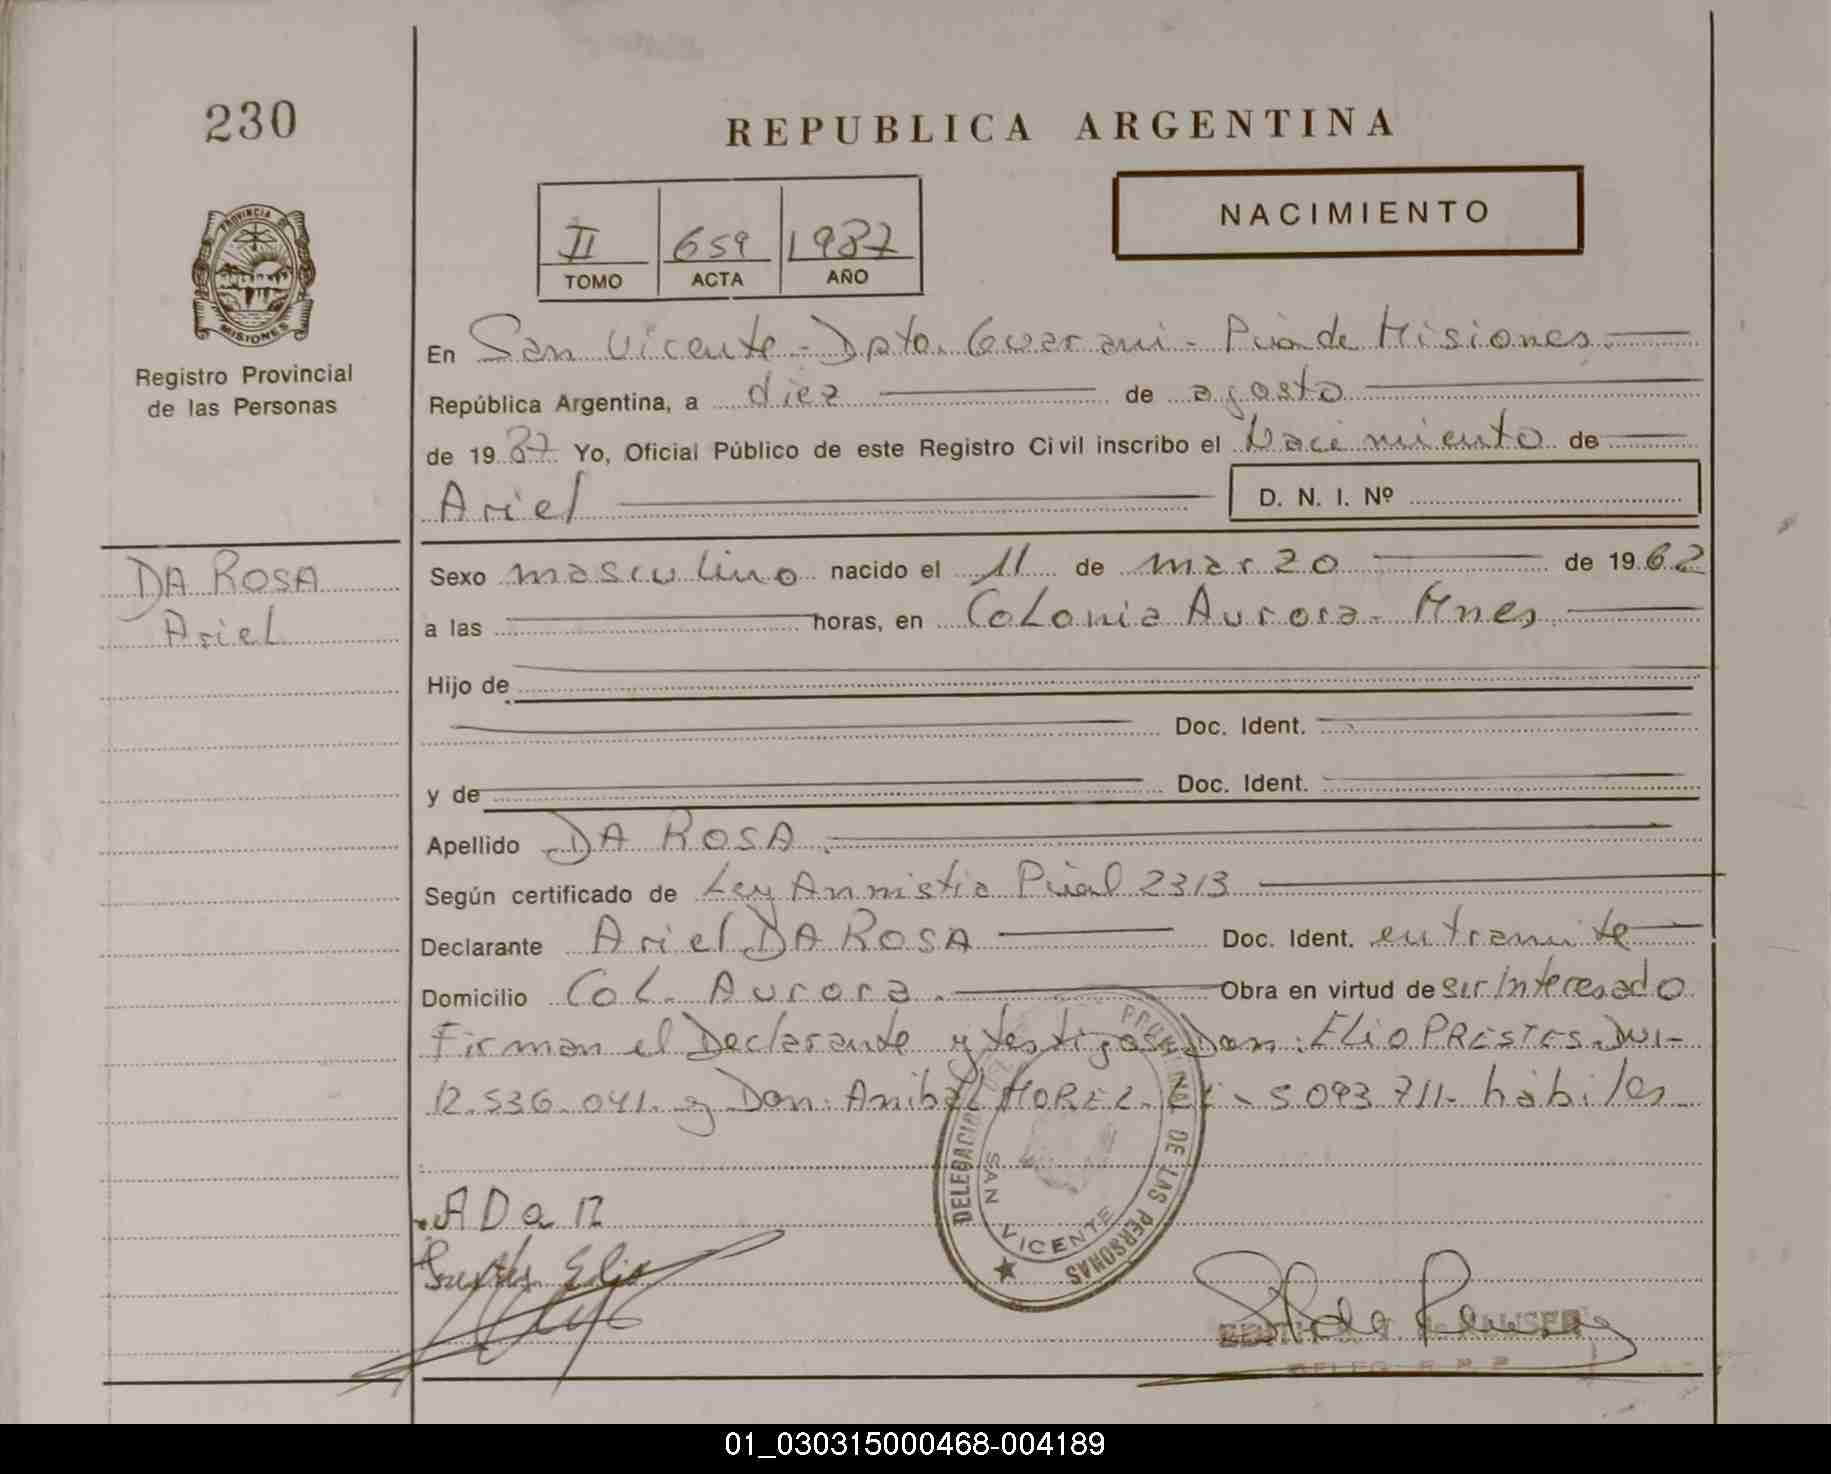 230
REPUBLICA ARGENTINA
NACIMIENTO
II 659 1987
TOMO ACTA AÑO
PROVINCIA DE
MISIONES
Registro Provincial
de las Personas
En San Vicente - Dpto. Guarani - Pcia de Misiones.
República Argentina, a diez de agosto
de 1987 Yo, Oficial Público de este Registro Civil inscribo el Nacimiento de
Ariel D. N. I. Nº
DA ROSA
Ariel
Sexo masculino nacido el 11 de marzo de 1962
a las horas, en Colonia Aurora - Mnes.
Hijo de
Doc. Ident.
y de Doc. Ident.
Apellido DA ROSA.
Según certificado de Ley Amnistia Pcial 2313
Declarante Ariel DA ROSA Doc. Ident. en tramite
Domicilio Col. Aurora. Obra en virtud de ser Interesado
Firman el Declarante y testigos Don: ELIO PRESTES. DNI-
12.536.041. y Don: Anibal MOREL. CI - 5.093.711- hábiles
DELEGACION PROVINCIAL DE LAS PERSONAS
SAN VICENTE
ADan
Prestes Elio
01_030315000468-004189